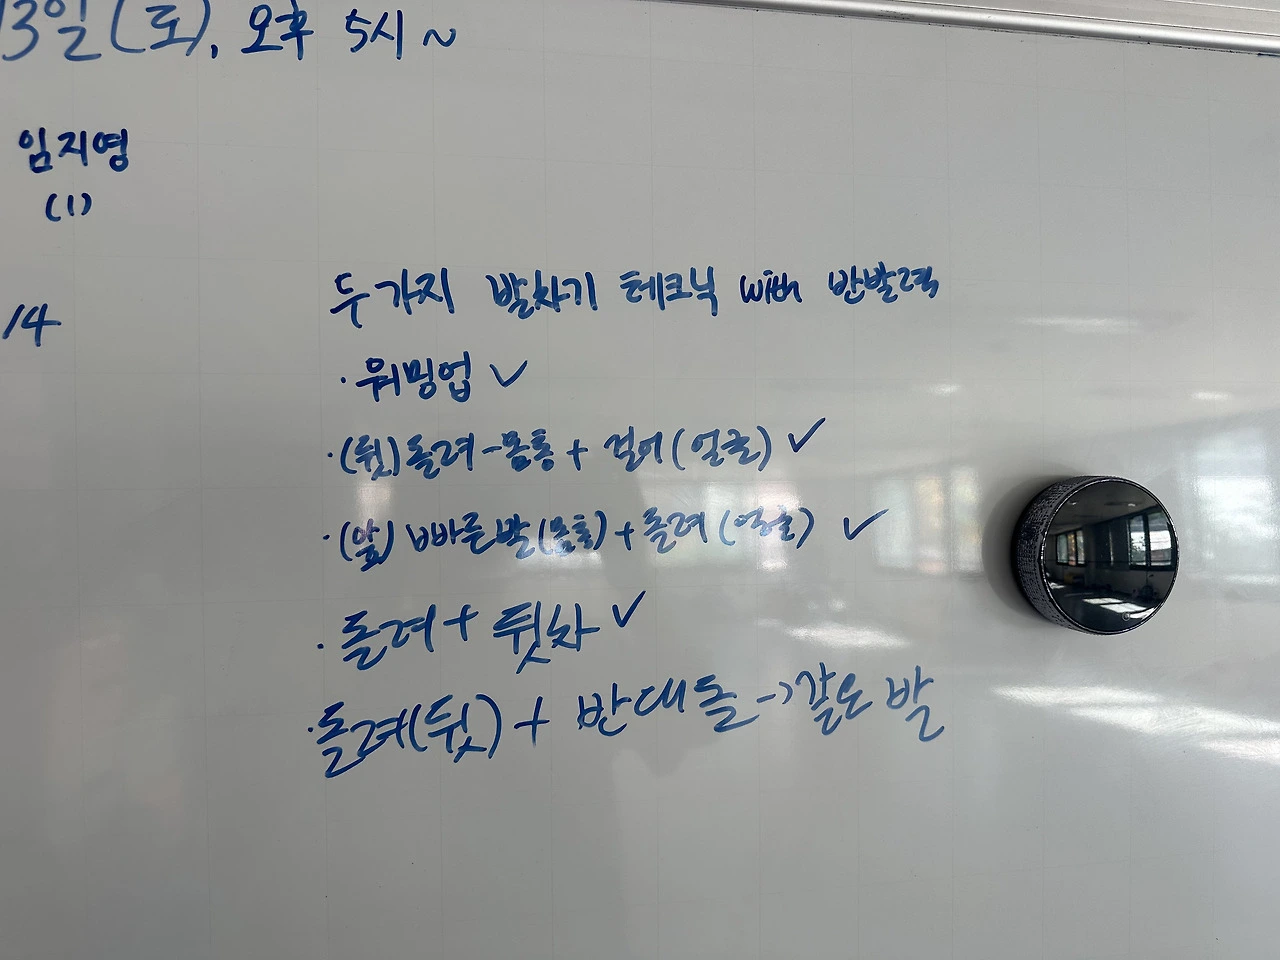 3일(토), 오후 5시~
임지영
(1)
/4
두가지 발차기 테크닉 with 반발력
· 워밍업 ✓
· (뒷)돌려-몸통 + 걸어(얼굴) ✓
· (앞) 빠른발(몸통) + 돌려 (얼굴) ✓
· 돌려 + 뒷차 ✓
· 돌려(뒷) + 반대돌 -> 같은 발